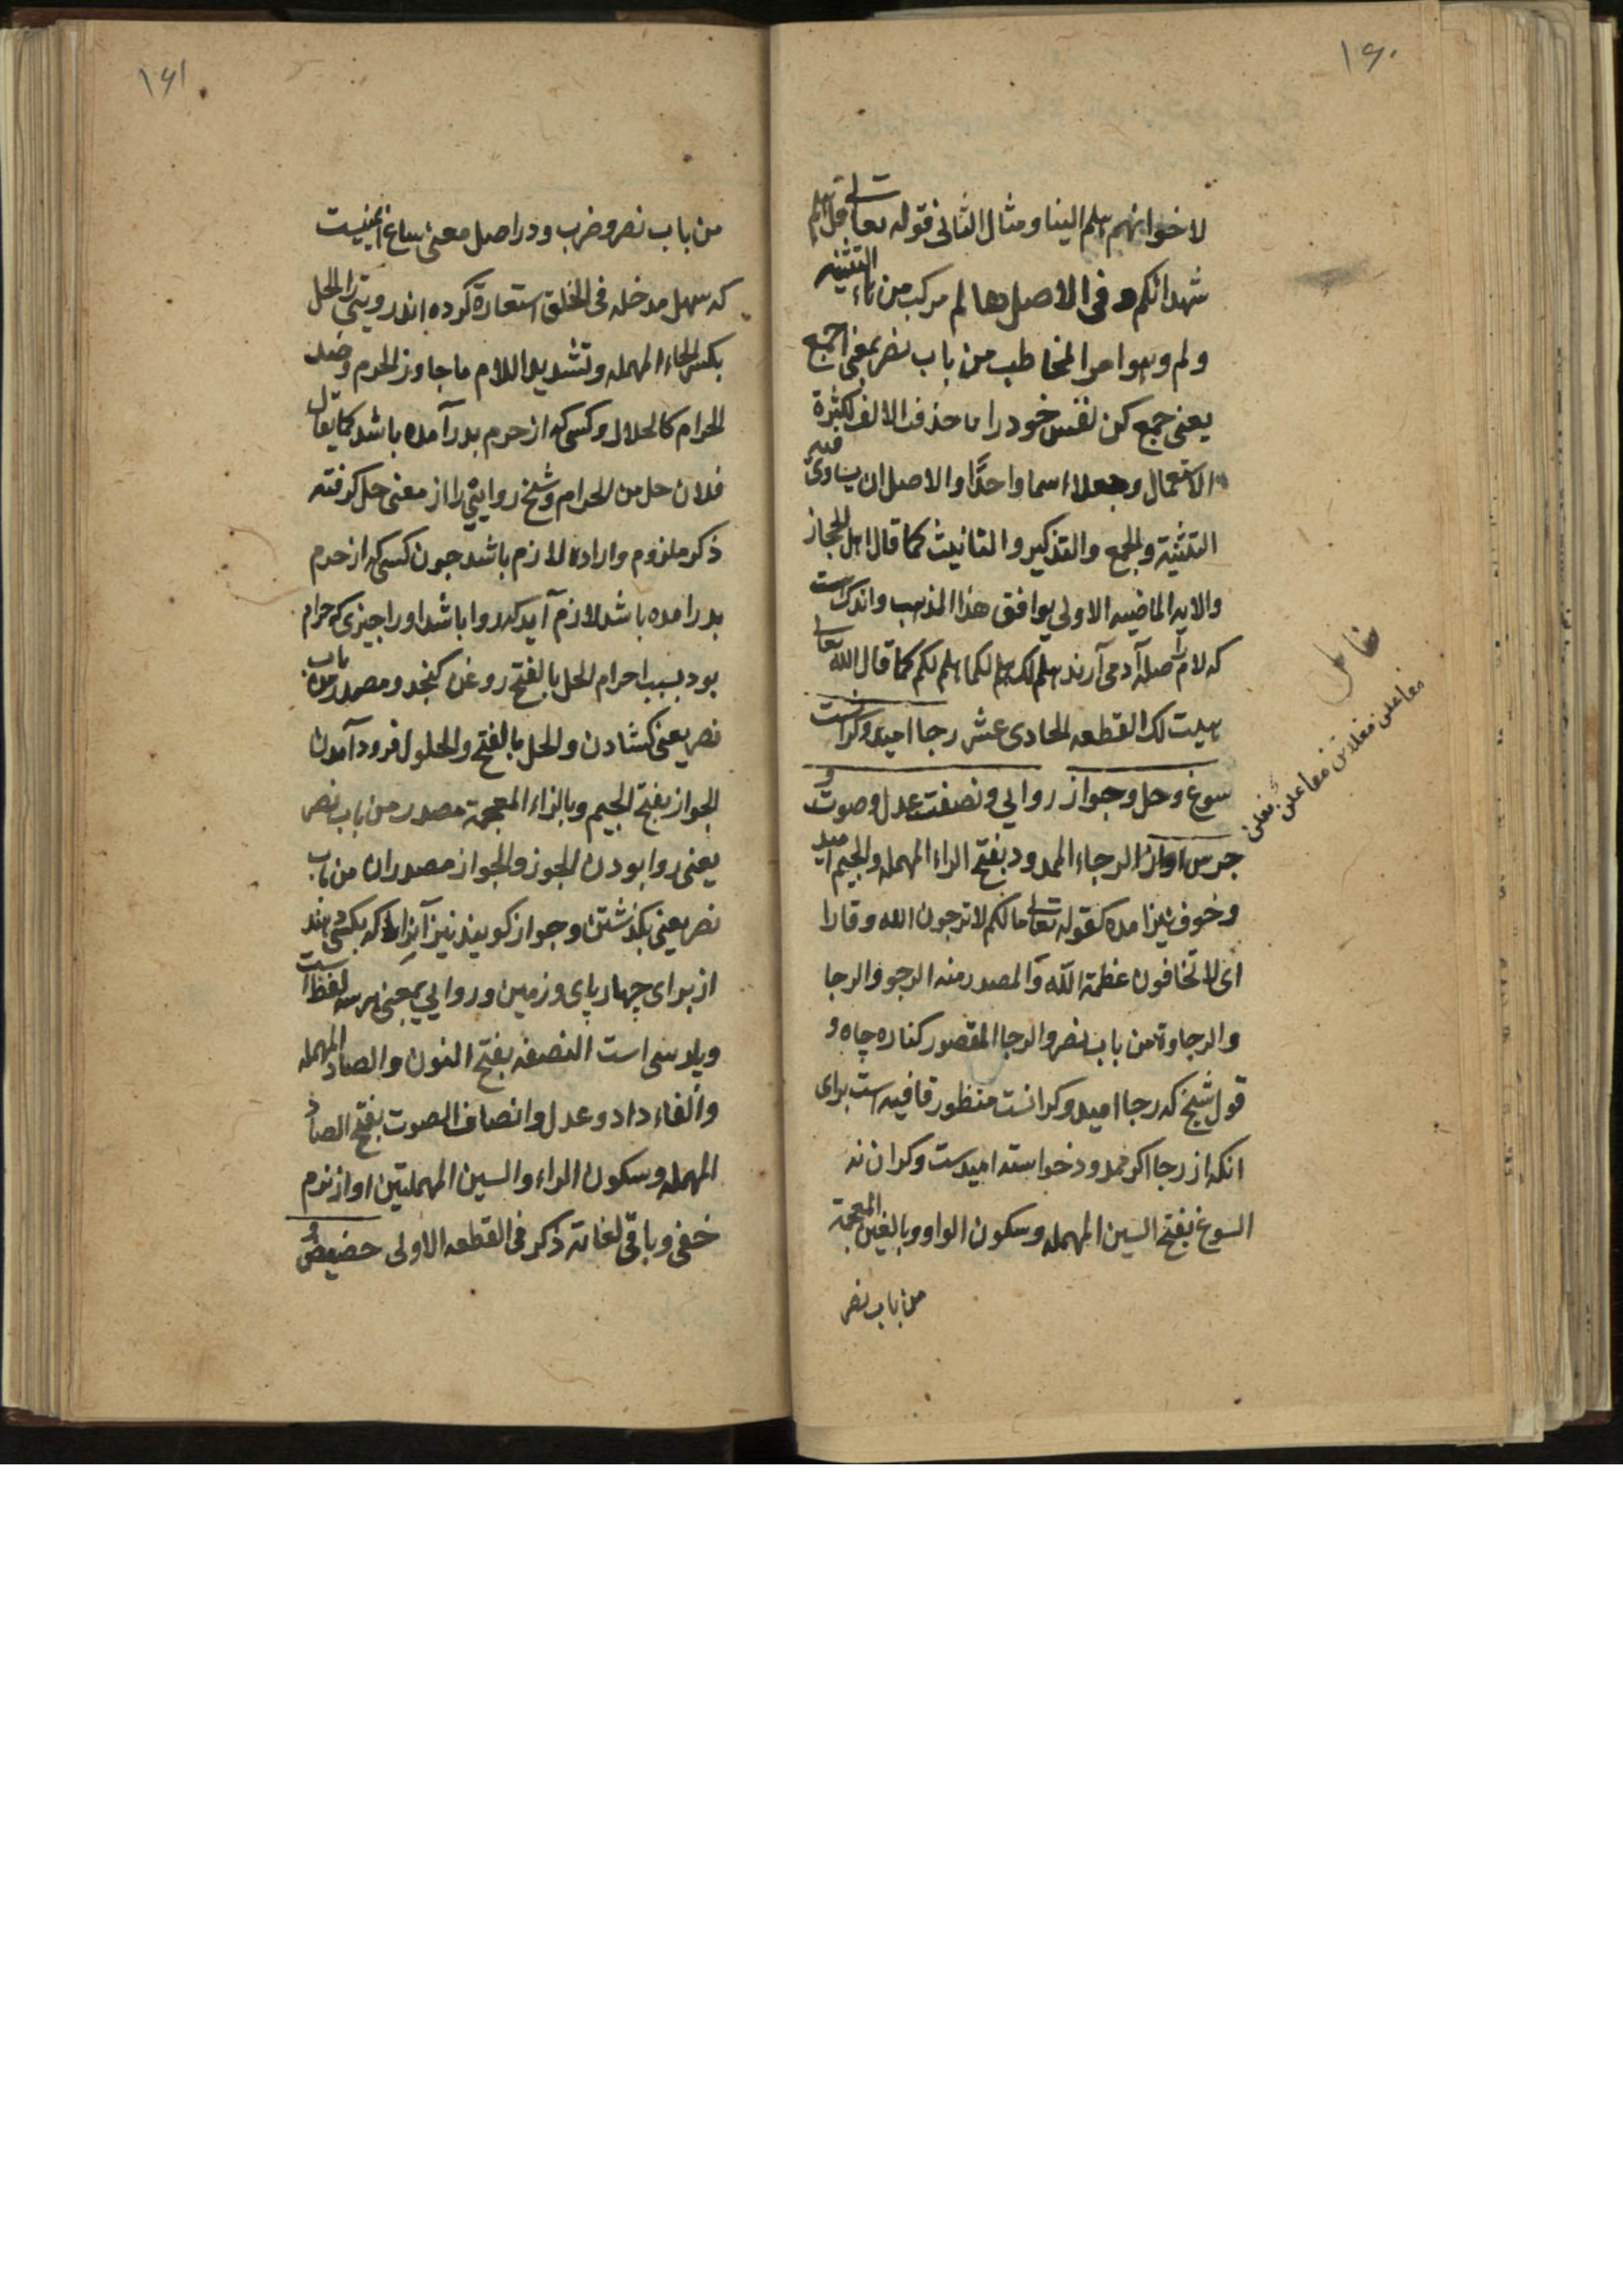 ۱۶۰
لاخوانهم هلم الینا ومثال الثانی فقوله تعالی قل هلم
شهدائکم وفی الاصل هالم مرکب من هاء التنبیه
ولم وهو امر المخاطب من باب نصر بمعنی اجمع
یعنی جمع کن نفس خود را ما حذفت الالف لکثرة
الاستعمال وجعلا اسما واحدًا والاصل ان یساوی فیه
التثنیة والجمع والتذکیر والتانیث کما قال اهل الحجاز
والایه الماضیه الاولی یوافق هذا المذهب واندک است
که لام را صله آدمی آرند هلم لک هلم لکما هلم لکم کما قال الله تعالی
هیت لک القطعه الحادی عشر رجا امید وکرانست
سوغ وحل وجواز روایی ونصفت عدل وصوت و
جرس اواز الرجاء الممدود بفتح الراء المهمله والجیم امید
وخوف نیز امده کقوله تعالی مالکم لاترجون لله وقارا
ای لاتخافون عظمة الله والمصدر منه الرجو والرجا
والرجاوة من باب نصر والرجا المقصور کناره چاه و
قول شیخ که رجا امید وکرانست منظور قافیه است برای
انکه از رجا اکر ممدود خواسته امیدست وکران نه
السوغ بفتح السین المهمله وسکون الواو وبالغین المعجمة
من باب نصر
مفاعلن فعلاتن مفاعلن فعلن
۱۶۱
من باب نصر وضرب ودر اصل معنی ساغ اینست
که سهل مدخله فی الحلق استعارة کرده اند روایتی را الحل
بکسر الحاء المهمله وتشدید اللام ما جاوز الحرم وضد
الحرام کالحلال وکسی که از حرم بدر آمده باشد کما یقال
فلان حل من الحرام وشیخ روایتی را از معنی حل کرفته
ذکر ملزوم واراده لازم باشد جون کسی که از حرم
بدر امده باشد لازم آید که روا باشد او را جیزی که حرام
بود بسبب احرام الحل بالفتح روغن کنجد ومصدر من باب
نصر یعنی کشادن والحل بالفتح والحلول فرود آمدن
الجواز بفتح الجیم وبالزاء المعجمة مصدر من باب نصر
یعنی روا بودن الجوز والجواز مصدران من باب
نصر یعنی بکذشتن وجواز کویند نیز آبرا که بکسی دهند
از برای چهار پای وزمین وروایی بمعنی هر سه لفظ است
ویارسی است النصفه بفتح النون والصاد المهمله
والفاء داد وعدل وانصاف الصوت بفتح الصاد
المهمله وسکون الراء والسین المهملتین اواز نرم
خفی وباقی لغاته ذکر فی القطعه الاولی حضیض و